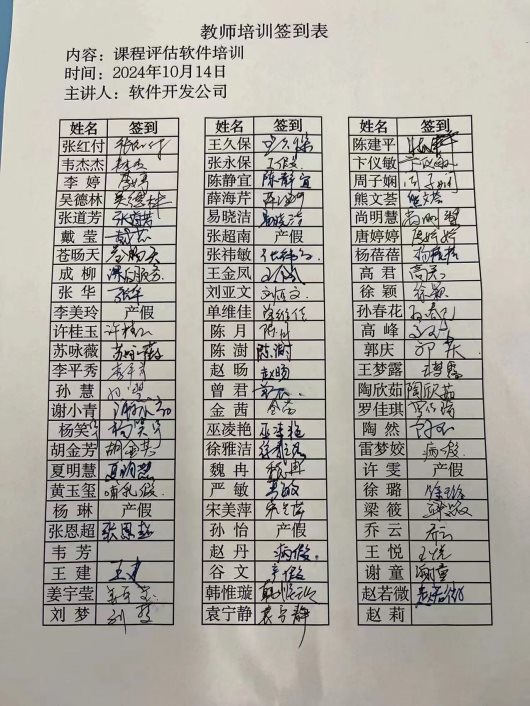 教师培训签到表
内容：课程评估软件培训
时间：2024年10月14日
主讲人：软件开发公司
姓名 签到 姓名 签到 姓名 签到
张红付 张红付 王久保 王久保 陈建平
韦杰杰 张永保 卞仪敏 卞仪敏
李婷 李婷 陈静宜 陈静宜 周子娴 周子娴
吴德林 吴德林 薛海芹 熊文荟 熊文荟
张道芳 张道芳 易晓洁 易晓洁 尚明慧 尚明慧
戴莹 戴莹 张超南 产假 唐婷婷
苍旸天 苍旸天 张祎敏 张祎敏 杨蓓蓓 杨蓓蓓
成柳 课后服务 王金凤 高君 高君
张华 张华 刘亚文 刘亚文 徐颖 徐颖
李美玲 产假 单维佳 单维佳 孙春花
许桂玉 许桂玉 陈月 陈月 高峰
苏咏薇 苏咏薇 陈澍 陈澍 郭庆 郭庆
李平秀 李平秀 赵旸 赵旸 王梦露
孙慧 孙慧 曾君 陶欣茹 陶欣茹
谢小青 金茜 金茜 罗佳琪
杨笑 杨笑 巫凌艳 巫凌艳 陶然
胡金芳 胡金芳 徐雅洁 徐雅洁 雷梦姣 病假
夏明慧 夏明慧 魏冉 魏冉 许雯 产假
黄玉玺 哺乳假 严敏 严敏 徐璐 徐璐
杨琳 产假 宋美萍 梁筱
张恩超 张恩超 孙怡 产假 乔云 乔云
韦芳 赵丹 病假 王悦 王悦
王建 王建 谷文 产假 谢童 谢童
姜宇莹 韩惟璇 赵若微 赵若微
刘梦 刘梦 袁宁静 袁宁静 赵莉